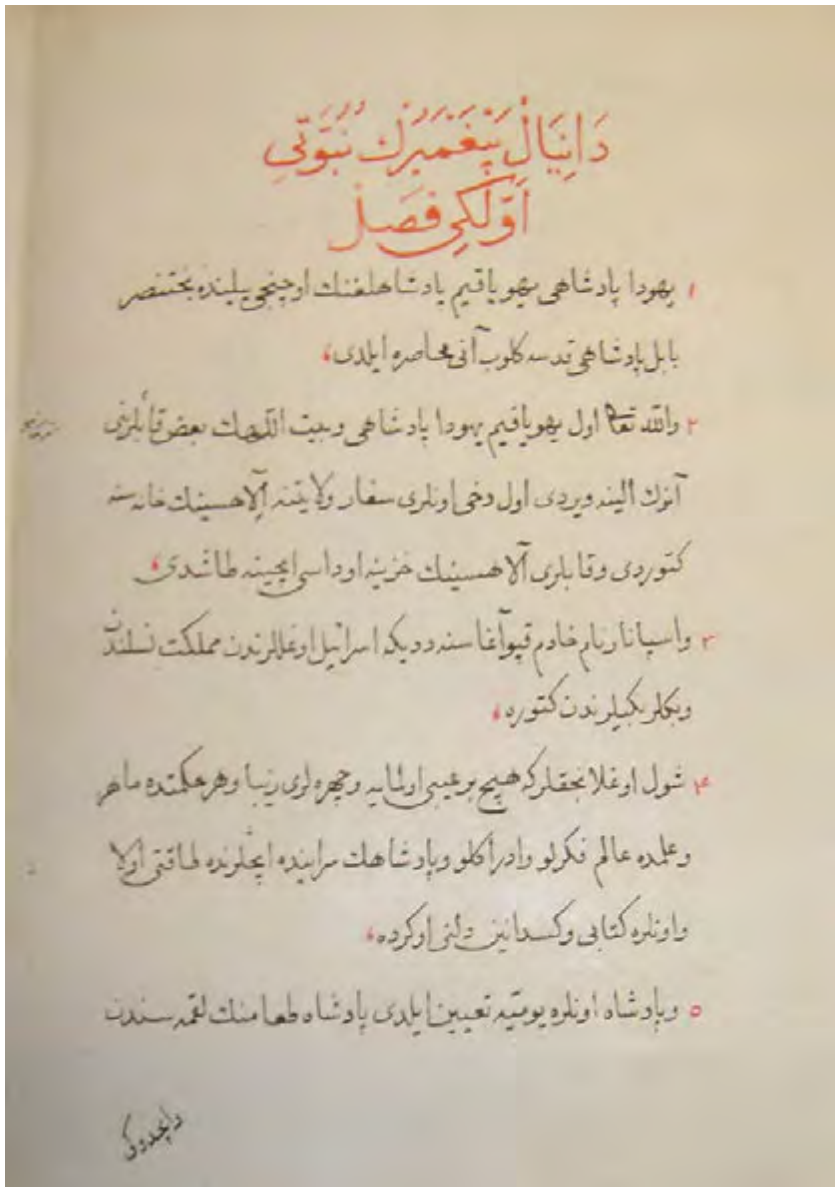 دَانِيَالْ پَيْغَمْبَرِك نُبُوَّتِي
اَوَّلْكِي فَصَلْ
۱ يهودا پادشاهى يهوياقيم پادشاهلغنك اوچنجى ييلينده بختنصر
بابل پادشاهى قدسه كلوب آنى محاصره ايلدى
۲ والله تعالى اول يهوياقيم يهودا پادشاهى وبيت اللهك بعض قابلرينى
آنوك الينه ويردى اول دخى اونلرى سنعار ولايتنه آلاهسينك خانه سنه
كتوردى وقابلرى آلاهسينك خزينه اوداسى ايچينه طاشدى
۳ واسپاناز نام خادم قپو آغاسنه ددیكه اسرائيل اوغللرندن مملكت نسلندن
وبكلر بكيلرندن كتوره
۴ شول اوغلانجقلركه هيچ بر عيبى اولمايه وچهره لرى زيبا وهر حكمتده ماهر
وعلمده عالم فكرلو وادراكلو وپادشاهك سراينده ايچلرنده طاقتى اولا
واونلره كتابى وكسدانين دلنى اوكرده
۵ وپادشاه اونلره يوميه تعيين ايلدى پادشاه طعامنك لقمه سندن